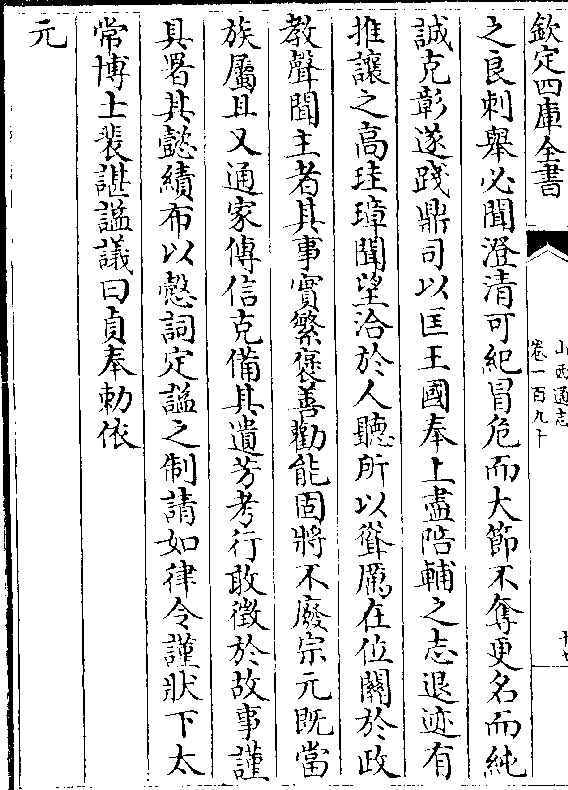 欽定四庫全書
山西通志
卷一百九十
之良刺舉必聞澄清可紀冒危而大節不奪更名而純
誠克彰遂踐鼎司以匡王國奉上盡陪輔之志退迹有
推讓之高珪璋聞望洽於人聽所以聳厲在位關於政
教聲聞主者其事實繁褒善勸能固將不廢宗元既當
族屬且又通家傳信克備其遺芳考行敢徵於故事謹
具署其懿績布以慤詞定諡之制請如律令謹狀下太
常博士裴諶諡議曰貞奉勅依
元